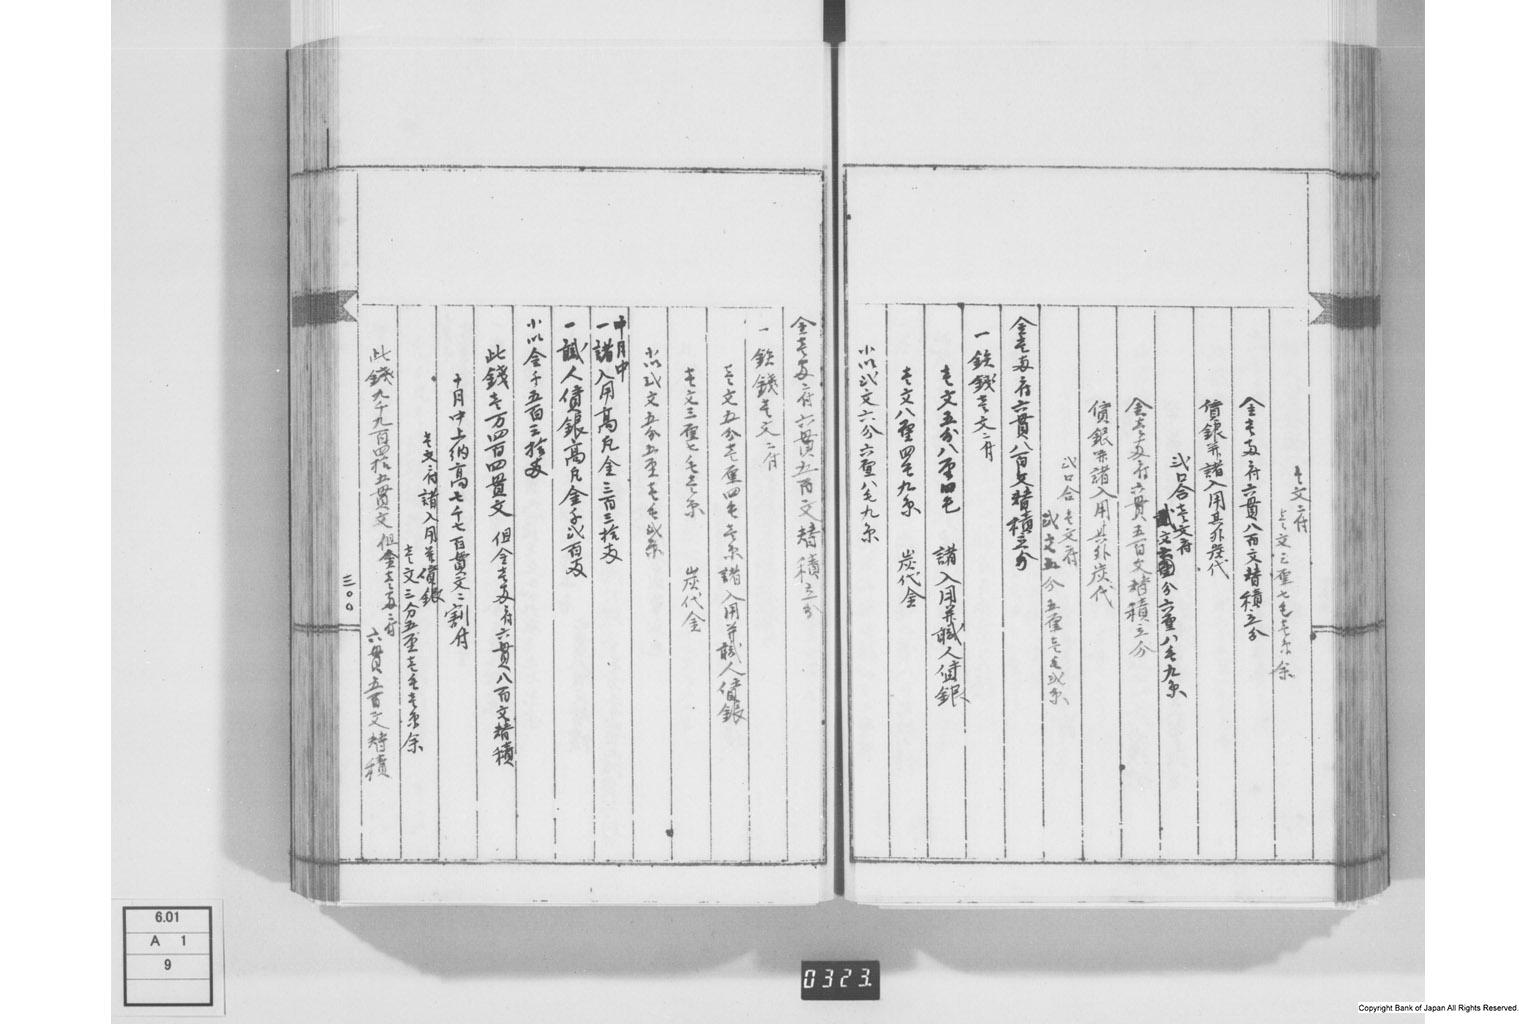 壱文ニ付
壱文三厘七毛壱糸余
金壱両ニ付六貫八百文替積立分
償銀并諸入用其外炭代
弐口合壱文ニ付
弐文六分六厘八毛九糸
金壱両ニ付六貫五百文替積立分
償銀并諸入用其外炭代
弐口合壱文ニ付
弐文五分五厘壱毛弐糸
金壱両ニ付六貫八百文替積立分
一鉄銭壱文ニ付
壱文五分八厘四毛 諸入用并職人償銀
壱文八厘四毛九糸 炭代金
小以弐文六分六厘八毛九糸
金壱両ニ付六貫五百文替積立分
一鉄銭壱文ニ付
壱文五分壱厘四毛壱糸 諸入用并職人償銀
壱文三厘七毛壱糸 炭代金
小以弐文五分五厘壱毛弐糸
十月中
一諸入用高凡金三百三拾両
一職人償銀高凡金千弐百両
小以金千五百三拾両
此銭壱万四百四貫文 但金壱両ニ付六貫八百文替積
十月中上納高七千七百貫文ニ割付
壱文ニ付諸入用并償銀
壱文三分五厘壱毛壱糸余
此銭九千九百四拾五貫文 但金壱両ニ付六貫五百文替積
三〇〇
6.01
A 1
9
0323.
Copyright Bank of Japan All Rights Reserved.